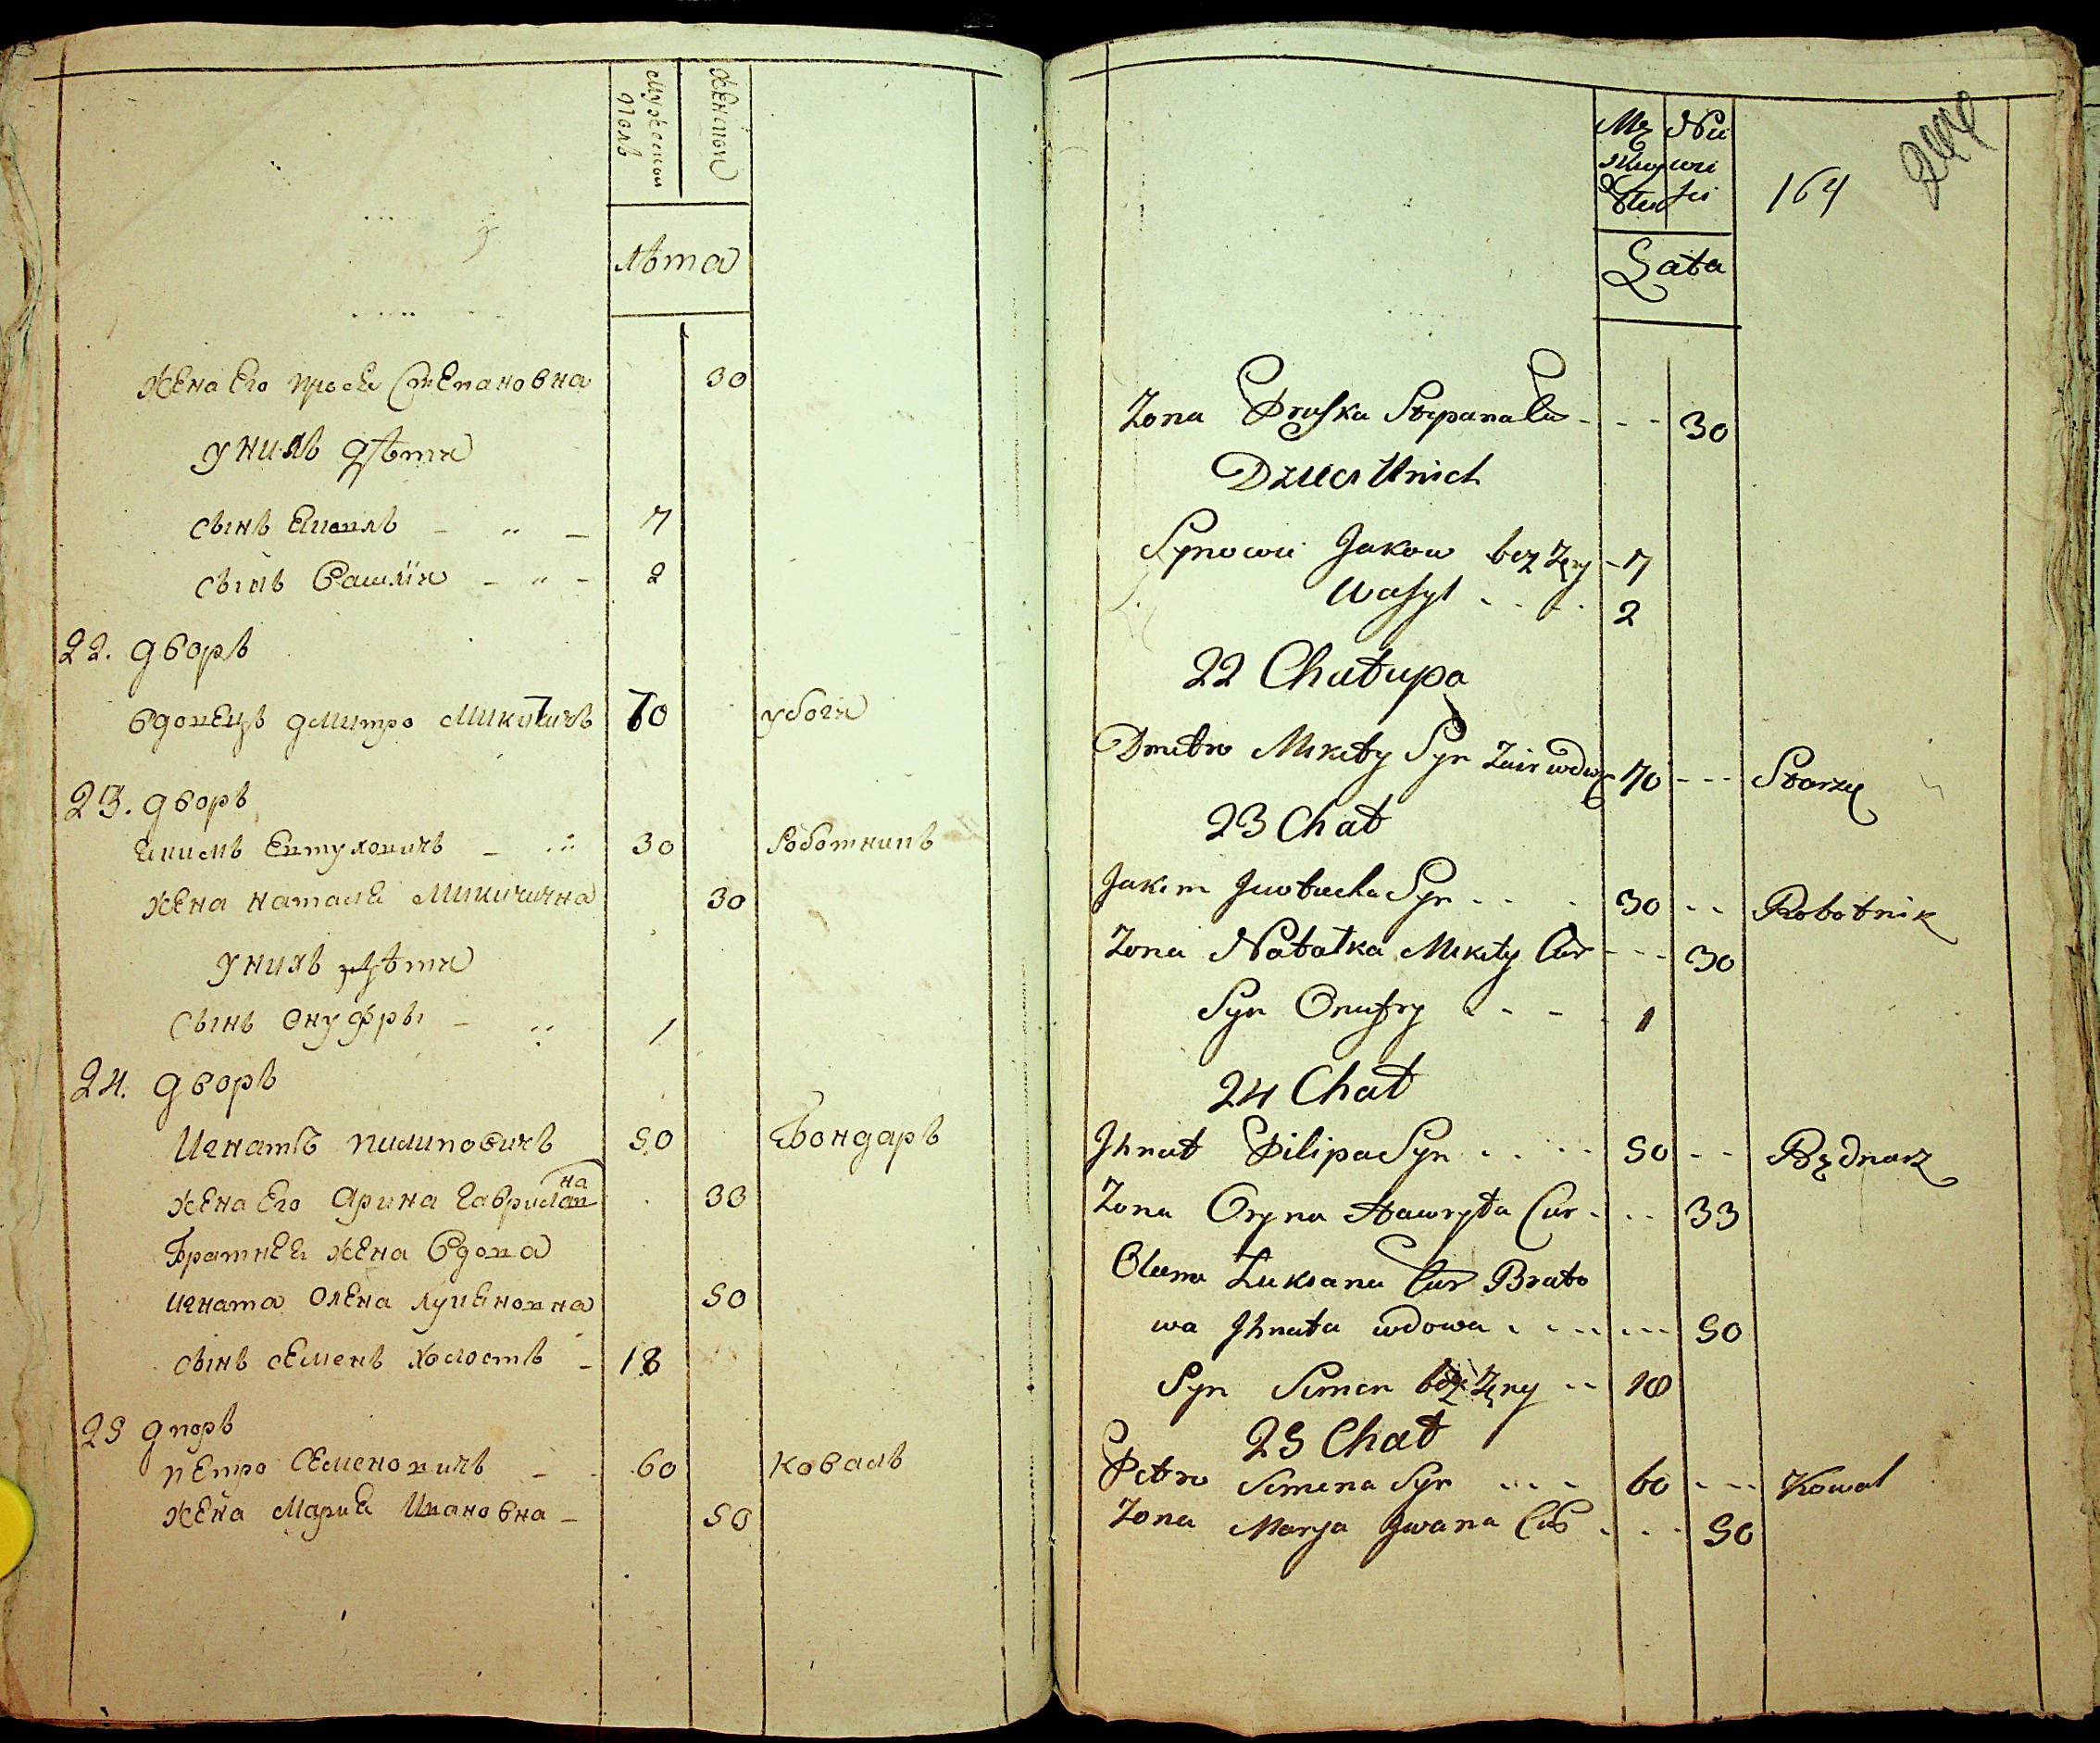 Мужескои
Полъ
Женскои
лѣта
жена Его проске Степановна 30
у нихъ дѣти
сынъ Екопъ - " - 7
сынъ Василiи - " - 2
22. дворъ
вдовецъ дмитро Микитичъ 70 убоги
23. дворъ
Якимъ Евтуховичъ - 30 Роботникъ
жена наталя Микитична 30
у нихъ дѣти
сынъ Онуфры - 1
24. дворъ
Игнатъ пилиповичъ 50 Бондаръ
жена Его Арина Гаврилов
на
33
Братнея жена вдова
игната Олена лукяновна 50
сынъ семенъ холостъ - 18
25 дворъ
петро Семеновичъ - 60 коваль
жена Мария Ивановна - 50
Mę Nie
skiey wie
Płci sci
164
Lata
Zona Pruska Stepana Cur - - - 30
Dzieci Unich
Synowie Jakow bez Żęny - 7
Wasyl . . . . 2
22 Chałupa
Dmitro Mikity Syn 70 - - - Starzę
23 Chat
Jakim Jwtucha Syn - - . 30 - - Robotnik
Zona Natałka Mikity Cur - - - 30
Syn Onufry - - - . 1
24 Chat
Jhnat Pilipa Syn . . . . 50 - - Będnarz
Zona Oryna Hawryła Cur . . . 33
Olena Łukiana Cur Brato
wa Jhnata wdowa . . . . . . . 50
Syn Simen bez Żęny - - 18
25 Chat
Petro Simena Syn . . . - 60 - - - Kowal
Zona Marya Jwana Cur . . . 50